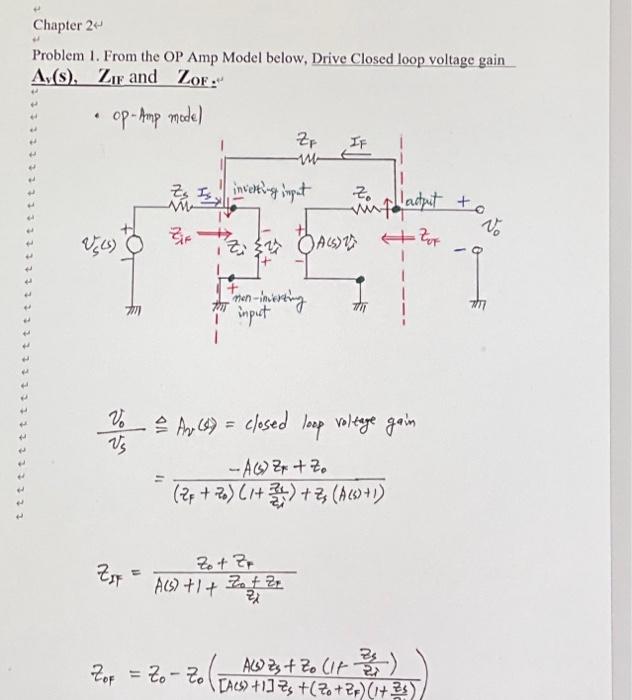 Chapter 2
Problem 1. From the OP Amp Model below, Drive Closed loop voltage gain
Av(s), ZIF and ZOF:
• op-Amp model
ZF IF
Zs Is inverting input Zo output +
Vs(s) + ZIF Zi Vi + A(s)Vi ZOF Vo
- + - -
+
non-inverting
input
Vo/Vs ≜ Av(s) = closed loop voltage gain
= (-A(s)ZF + Zo) / ((ZF + Zo)(1 + Zs/Zi) + Zs(A(s)+1))
ZIF = (Zo + ZF) / (A(s) + 1 + (Zo + ZF)/Zi)
ZOF = Zo - Zo (A(s)Zs + Zo(1 + Zs/Zi) / [A(s)+1]Zs + (Zo+ZF)(1 + Zs/Zi))